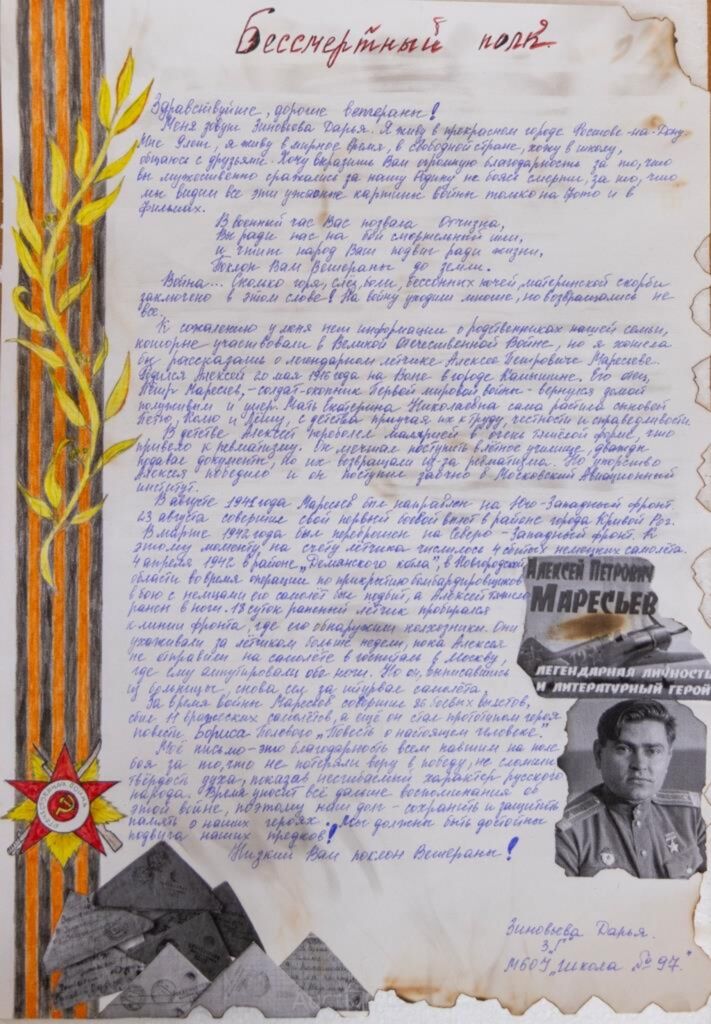 Бессмертный полк
Здравствуйте, дорогие ветераны!
Меня зовут Зиновьева Дарья. Я живу в прекрасном городе Ростове-на-Дону.
Мне 9 лет, я живу в мирное время, в свободной стране, хожу в школу,
общаюсь с друзьями. Хочу выразить Вам огромную благодарность за то, что
вы мужественно сражались за нашу Родину, не боясь смерти, за то, что
мы видим все эти ужасные картины войны только на фото и в
фильмах.
В военный час Вас позвала Отчизна,
Вы ради нас на бой смертельный шли,
И чтит народ Ваш подвиг ради жизни,
Поклон Вам Ветераны до земли.
Война... Сколько горя, слез, боли, бессонных ночей, материнской скорби
заключено в этом слове! На войну уходили многие, но возвращались не
все.
К сожалению у меня нет информации о родственниках нашей семьи,
которые участвовали в Великой Отечественной Войне, но я хотела
бы рассказать о легендарном лётчике Алексее Петровиче Маресьеве.
Родился Алексей 20 мая 1916 года на Волге в городе Камышине. Его отец,
Пётр Маресьев, - солдат-окопник Первой мировой войны - вернулся домой
полуживым и умер. Мать Екатерина Николаевна сама растила сыновей
Петю, Колю и Лёшу, с детства приучая их к труду, честности и справедливости.
В детстве Алексей переболел малярией в очень тяжёлой форме, что
привело к ревматизму. Он мечтал поступить в лётное училище, дважды
подавал документы, но их возвращали из-за ревматизма. Но упорство
Алексея победило и он поступил заочно в Московский Авиационный
институт.
В августе 1941 года Маресьев был направлен на Юго-Западный фронт.
23 августа совершил свой первый боевой вылет в районе города Кривой Рог.
В марте 1942 года был переброшен на Северо-Западный фронт. К
этому моменту на счету лётчика числилось 4 сбитых немецких самолёта.
4 апреля 1942 в районе "Демянского котла" в Новгородской
области во время операции по прикрытию бомбардировщиков
в бою с немцами его самолёт был подбит, а Алексей тяжело
ранен в ноги. 18 суток раненый лётчик пробирался
к линии фронта где его обнаружили колхозники. Они
ухаживали за лётчиком больше недели, пока Алексея
не отправили на самолёте в госпиталь в Москву,
где ему ампутировали обе ноги. Но он, выписавшись
из больницы, снова сел за штурвал самолёта.
За время войны Маресьев совершил 86 боевых вылетов,
сбил 11 вражеских самолётов, а ещё он стал прототипом героя
повести Бориса Полевого "Повесть о настоящем человеке".
Моё письмо - это благодарность всем павшим на поле
боя за то, что не потеряли веру в победу, не сломили
твёрдость духа, показав несгибаемый характер русского
народа. Время уносит всё дальше воспоминания об
этой войне, поэтому наш долг - сохранить и защитить
память о наших героях. Мы должны быть достойны
подвига наших предков!
Низкий Вам поклон Ветераны!
Алексей Петрович
Маресьев
легендарная личность
и литературный герой
Отечественная война
Зиновьева Дарья.
3 "Г"
МБОУ "Школа №97."